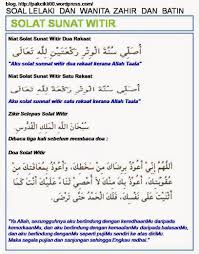 blog. http://pakcikli00.wordpress.com/
SOAL LELAKI DAN WANITA ZAHIR DAN BATIN
SOLAT SUNAT WITIR
Niat Solat Sunat Witir Dua Rakaat
أُصَلِّي سُنَّةَ الْوِتْرِ رَكْعَتَيْنِ لِلَّهِ تَعَالَى
"Aku solat sunnat witir dua rakaat kerana Allah Taala"
Niat Solat Sunat Witir Satu Rakaat
أُصَلِّي سُنَّةَ الْوِتْرِ رَكْعَةً لِلَّهِ تَعَالَى
"Aku solat sunnat witir satu rakaat kerana Allah Taala"
Zikir Selepas Solat Witir
سُبْحَانَ اللَّهِ الْمَلِكِ الْقُدُّوسِ
Dibaca tiga kali sebelum membaca doa :
Doa Solat Witir
اللَّهُمَّ إِنِّي أَعُوذُ بِرِضَاكَ مِنْ سَخَطِكَ، وَأَعُوذُ بِمُعَافَاتِكَ مِنْ
عُقُوبَتِكَ، وَأَعُوذُ بِكَ مِنْكَ لَا أُحْصِي ثَنَاءً عَلَيْكَ أَنْتَ كَمَا
أَثْنَيْتَ عَلَى نَفْسِكَ، فَلَكَ الْحَمْدُ حَتَّى تَرْضَى
"Ya Allah, sesungguhnya aku berlindung dengan keredhaanMu daripada
kemurkaanMu, dan aku berlindung dengan kemaafanMu daripada balasanMu,
dan aku berlindung denganMu seperti pujiMu sendiri ke atas diriMu.
Maka segala pujian dan sanjungan sehingga Engkau redhai."